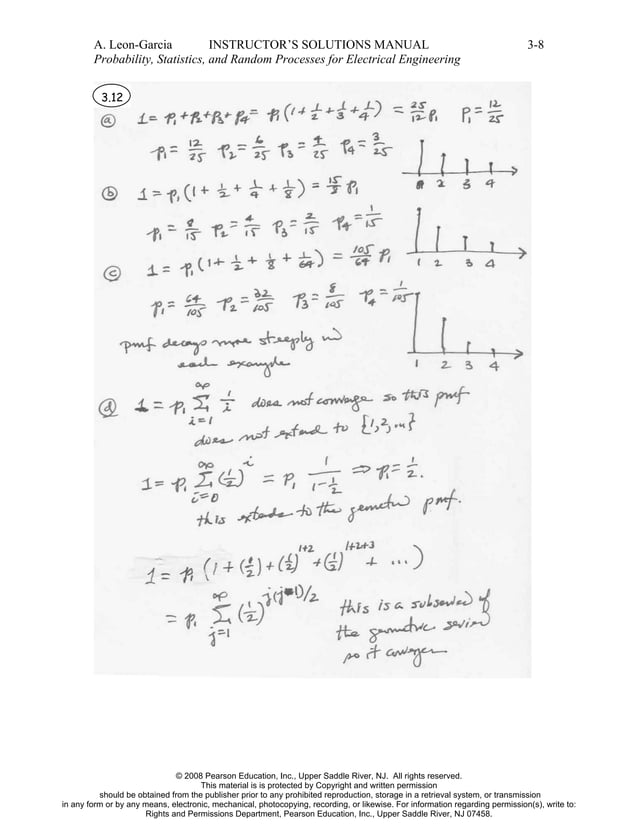 A. Leon-Garcia INSTRUCTOR'S SOLUTIONS MANUAL 3-8
Probability, Statistics, and Random Processes for Electrical Engineering
3.12
ⓐ 1 = p₁+p₂+p₃+p₄ = p₁(1+1/2+1/3+1/4) = 25/12 p₁ p₁ = 12/25
p₁ = 12/25 p₂ = 6/25 p₃ = 4/25 p₄ = 3/25
1 2 3 4
ⓑ 1 = p₁(1 + 1/2 + 1/4 + 1/8) = 15/8 p₁
p₁ = 8/15 p₂ = 4/15 p₃ = 2/15 p₄ = 1/15
1 2 3 4
ⓒ 1 = p₁(1 + 1/2 + 1/8 + 1/64) = 105/64 p₁
p₁ = 64/105 p₂ = 32/105 p₃ = 8/105 p₄ = 1/105
pmf decays more steeply in
each example
1 2 3 4
ⓓ 1 = p₁ ∑_{i=1}^{∞} 1/i does not converge so this pmf
does not extend to {1,2,...}
1 = p₁ ∑_{i=0}^{∞} (1/2)^i = p₁ 1/(1-1/2) ⇒ p₁ = 1/2.
this extends to the geometric pmf.
1 = p₁ (1 + (1/2) + (1/2)^{1+2} + (1/2)^{1+2+3} + ...)
= p₁ ∑_{j=1}^{∞} (1/2)^{j(j-1)/2} this is a subseries of
the geometric series
so it converges
© 2008 Pearson Education, Inc., Upper Saddle River, NJ. All rights reserved.
This material is is protected by Copyright and written permission
should be obtained from the publisher prior to any prohibited reproduction, storage in a retrieval system, or transmission
in any form or by any means, electronic, mechanical, photocopying, recording, or likewise. For information regarding permission(s), write to:
Rights and Permissions Department, Pearson Education, Inc., Upper Saddle River, NJ 07458.